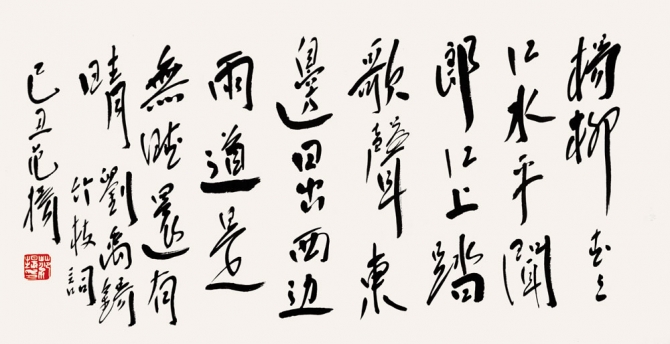 楊柳青々
江水平聞
郎江上踏
歌聲東
邊日出西边
雨道是
無晴還有
晴 劉禹錫
竹枝詞
己丑范揚